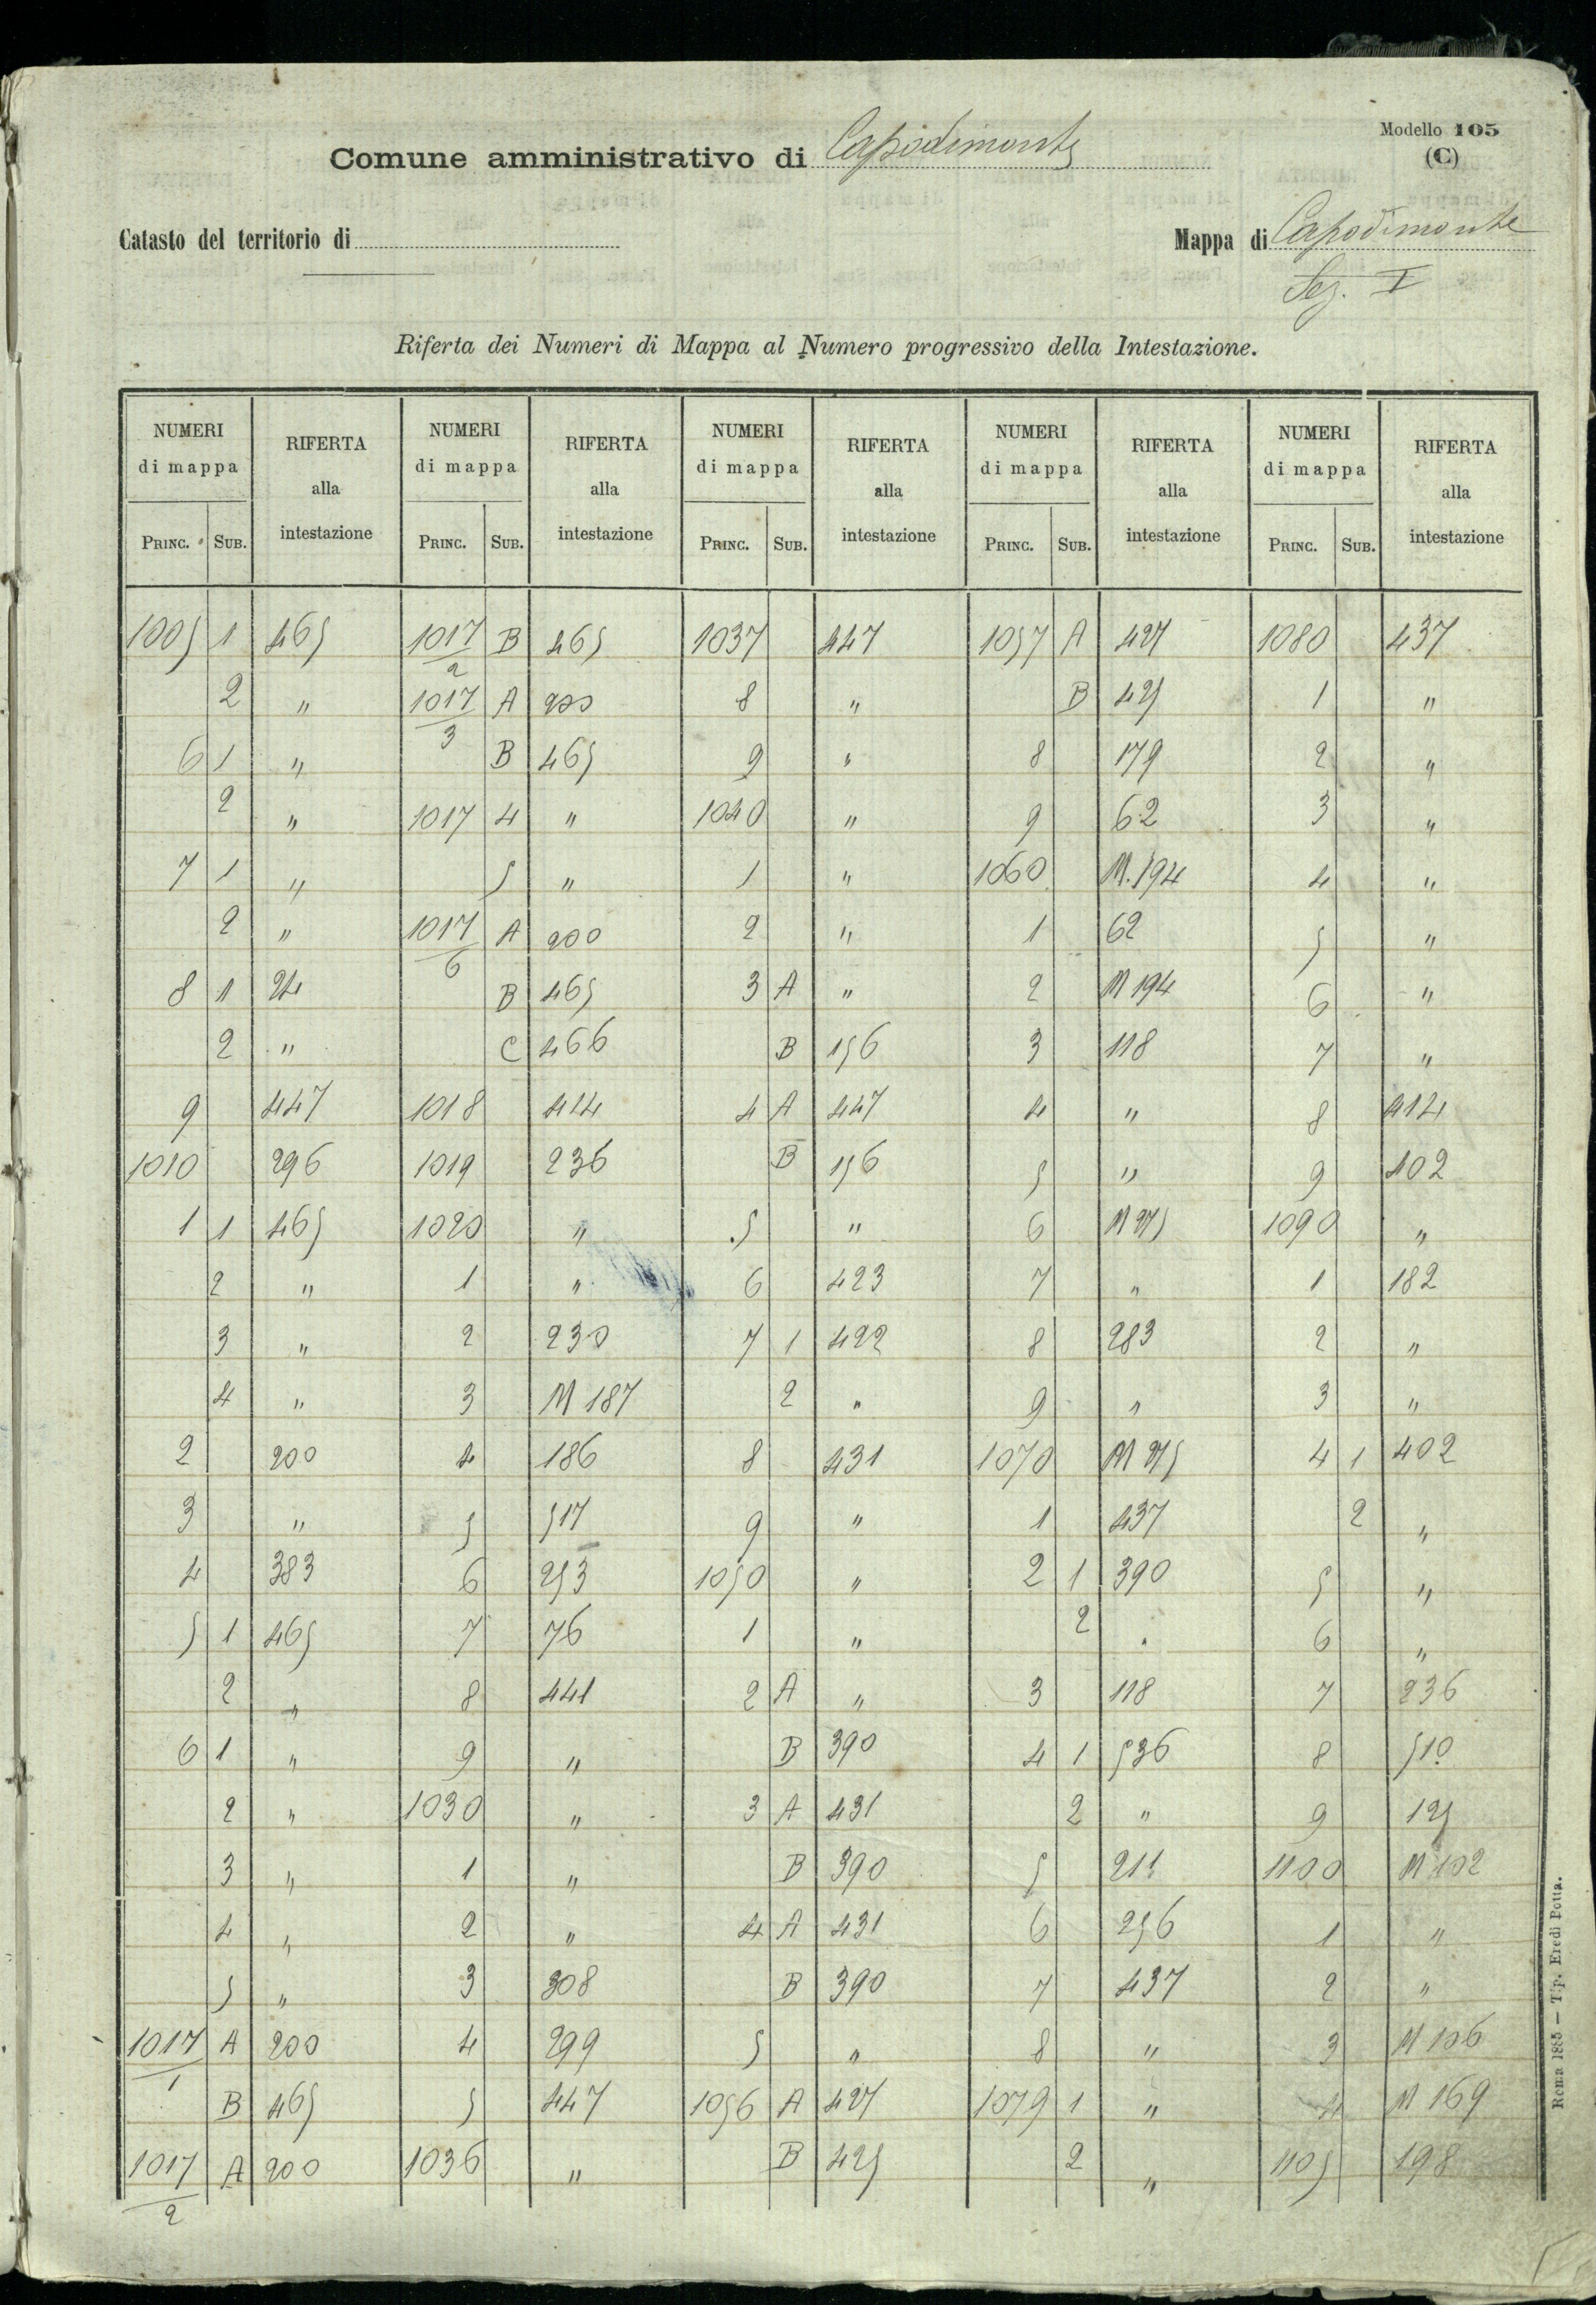 Modello 105
(C)
Comune amministrativo di Capodimonte
Catasto del territorio di
Mappa di Capodimonte
Sez. I
Riferta dei Numeri di Mappa al Numero progressivo della Intestazione.
NUMERI di mappa RIFERTA alla intestazione NUMERI di mappa RIFERTA alla intestazione NUMERI di mappa RIFERTA alla intestazione NUMERI di mappa RIFERTA alla intestazione NUMERI di mappa RIFERTA alla intestazione
PRINC. SUB. PRINC. SUB. PRINC. SUB. PRINC. SUB. PRINC. SUB.
1005 1 465 1017/2 B 465 1037 447 1057 A 427 1080 437
2 " 1017/3 A 200 8 " B 425 1 "
6 1 " B 465 9 " 8 179 2 "
2 " 1017 4 " 1040 " 9 62 3 "
7 1 " 5 " 1 " 1060 M. 194 4 "
2 " 1017/6 A 200 2 " 1 62 5 "
8 1 24 B 465 3 A " 2 M 194 6 "
2 " C 466 B 156 3 118 7 "
9 447 1018 444 4 A 447 4 " 8 414
1010 296 1019 236 B 156 5 " 9 402
1 1 465 1020 " 5 " 6 M 275 1090 "
2 " 1 " 6 423 7 " 1 182
3 " 2 230 7 1 422 8 283 2 "
4 " 3 M 187 2 " 9 " 3 "
2 200 4 186 8 431 1070 M 275 4 1 402
3 " 5 517 9 " 1 437 2 "
4 383 6 253 1050 " 2 1 390 5 "
5 1 465 7 76 1 " 2 " 6 "
2 " 8 441 2 A " 3 118 7 236
6 1 " 9 " B 390 4 1 536 8 510
2 " 1030 " 3 A 431 2 " 9 125
3 " 1 " B 390 5 211 1100 M 102
4 " 2 " 4 A 431 6 256 1 "
5 " 3 308 B 390 7 437 2 "
1017/1 A 200 4 299 5 " 8 " 3 M 106
B 465 5 447 1056 A 427 1079 1 " 4 M 169
1017/2 A 200 1036 " B 425 2 " 1105 198
Roma 1885 — Tip. Eredi Botta.